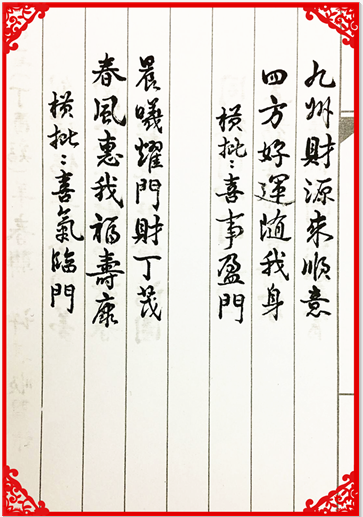 九州財源來順意
四方好運隨我身
橫批：喜事盈門
晨曦耀門財丁茂
春風惠我福壽康
橫批：喜氣臨門